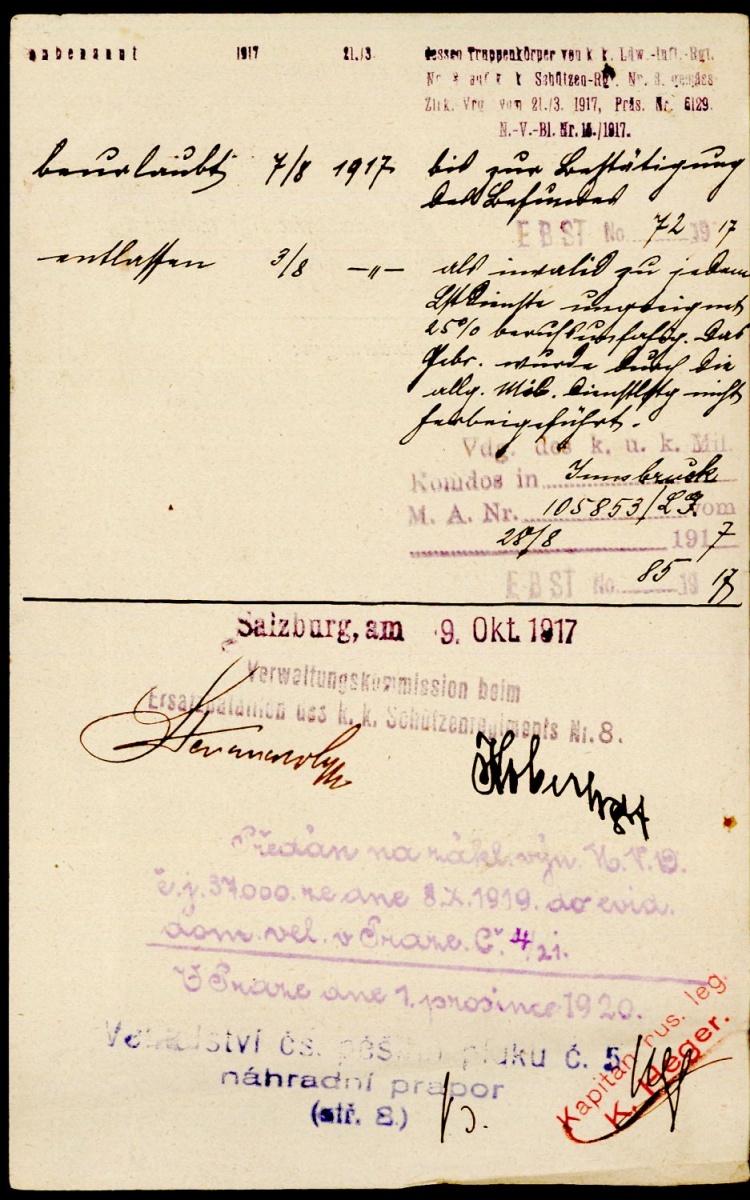 unbenannt 1917 21./3. dessen Truppenkörper von k. k. Ldw.-Inft.-Rgt.
Nr. 8 auf k. k. Schützen-Rgt. Nr. 8. gemäss
Zirk. Vrg. vom 21./3. 1917, Präs. Nr. 6129.
N.-V.-Bl. Nr. /1917.
beurlaubt 7/8 1917 bis zur Bestätigung
des Befundes
EBST No. 72 1917
entlassen 3/8 —"— als invalid zu jedem
Lstdienste ungeeignet
25% berufsunfähig. Das
Gebr. wurde durch die
allg. Mil. Dienstlstg nicht
herbeigeführt.
Vdg. des k. u. k. Mil.
Komdos in Innsbruck
M. A. Nr. 105853/ vom
28/8 1917
EBST No. 85 1917
Salzburg, am 9. Okt. 1917
Verwaltungskommission beim
Ersatzbataillon des k. k. Schützenregiments Nr. 8.
Předán na zákl. výn. M.N.O.
č.j. 37.000. ze dne 8.X.1919. do evid.
dom. vel. v Praze. Č. 4/21.
V Praze dne 1. prosince 1920.
Velitelství čs. pěšího pluku č. 5
náhradní prapor
(stř. 8.)
Kapitán rus. leg.
K. Heger.